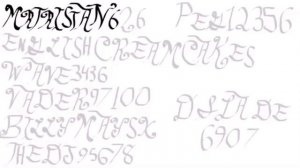 MATATSTAN626
PELI2356
ENGLISH CREAM CAKES
WAVE3436
VADER97100
DSLADE
6907
BILLYMAYSX
THEDJ95678